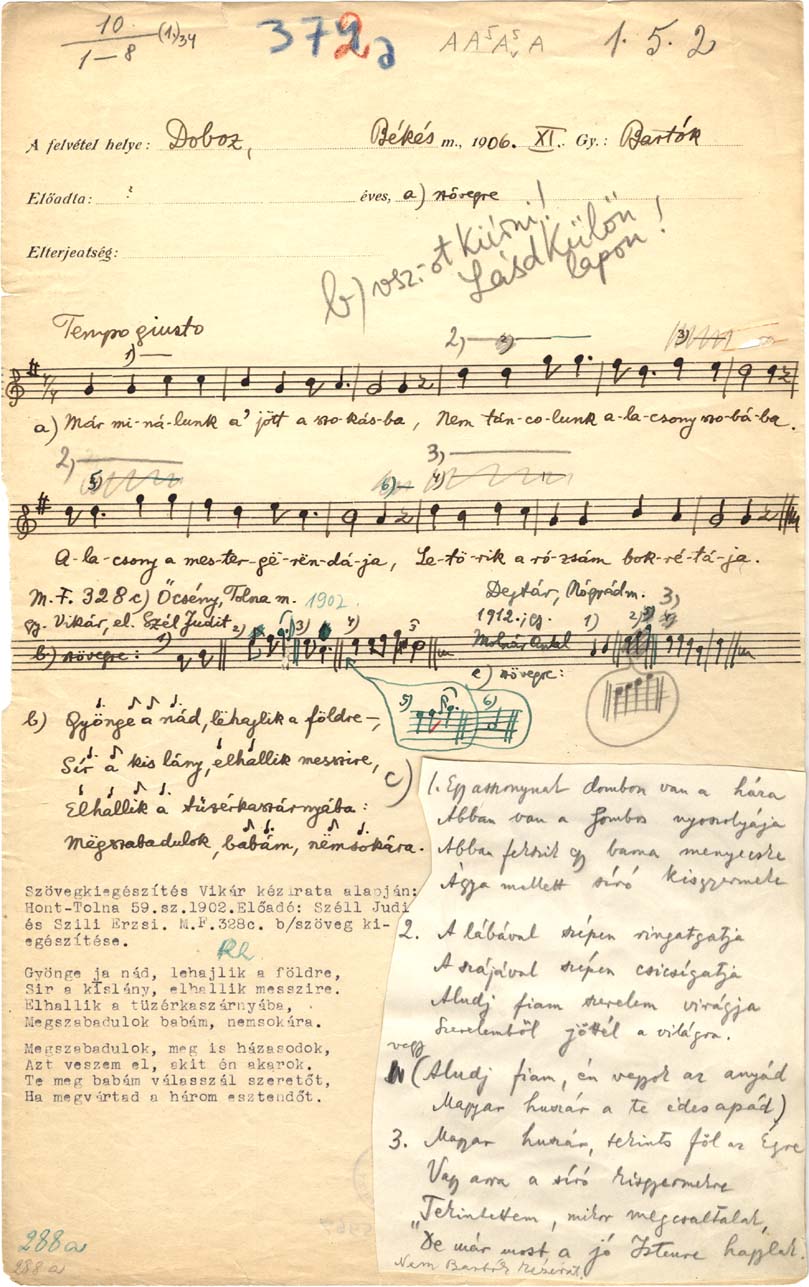 10
1–8
(1.)34
379 2 a
A A⁵ A⁵ᵥ A
1. 5. 2
A felvétel helye: Doboz, Békés m., 1906. XI. Gy.: Bartók
Előadta: ? éves, a) szövegre
Elterjeatség:
b) vsz.-ot kiírni!
Lásd külön
lapon!
Tempo giusto
1)
2)
3)
a) Már mi-ná-lunk a' jött a szo-kás-ba, Nem tán-co-lunk a-la-csony szo-bá-ba.
2)
5)
6)
3)
4)
A-la-csony a mes-ter-gë-rën-dá-ja, Le-tö-rik a ró-zsám bok-ré-tá-ja.
M. F. 328 c) Őcsény, Tolna m. 1902.
Dejtár, Nógrád m. 3)
gy. Vikár, el. Szél Judit
1912.; gy.
Molnár Antal
b) szövegre: 1) 2) 3) 4)
1) 2)
c) szövegre:
5) 6)
b) Gyönge a nád, lehajlik a földre–,
Sír a kis lány, elhallik messzire,
Elhallik a tüzérkaszárnyába:
Mëgszabadulok, babám, nëmsokára.
c)
1. Egy asszonynak dombon van a háza
Abban van a gombos nyoszolyája
Abban fekszik egy barna menyecske
Ágya mellett síró kisgyermeke
2. A lábával szépen ringatgatja
A szájával szépen csicsígatja
Aludj fiam szerelem virágja
Szerelemből jöttél a világra.
vagy
(Aludj fiam, én vagyok az anyád
Magyar huszár a te édesapád)
3. Magyar huszár, tekints föl az Égre
Vagy arra a síró kisgyermekre
"Tekintettem, mikor megcsaltalak,
De már most a jó Istenre hagylak.
Nem Bartók kézírát
Szövegkiegészítés Vikár kézirata alapján:
Hont-Tolna 59.sz.1902.Előadó: Széll Judi
és Szili Erzsi. M.F.328c. b/szöveg ki-
egészítése.
Gyönge ja nád, lehajlik a földre,
Sir a kislány, elhallik messzire.
Elhallik a tüzérkaszárnyába,
Megszabadulok babám, nemsokára.
Megszabadulok, meg is házasodok,
Azt veszem el, akit én akarok.
Te meg babám válasszál szeretőt,
Ha megvártad a három esztendőt.
288a
288a